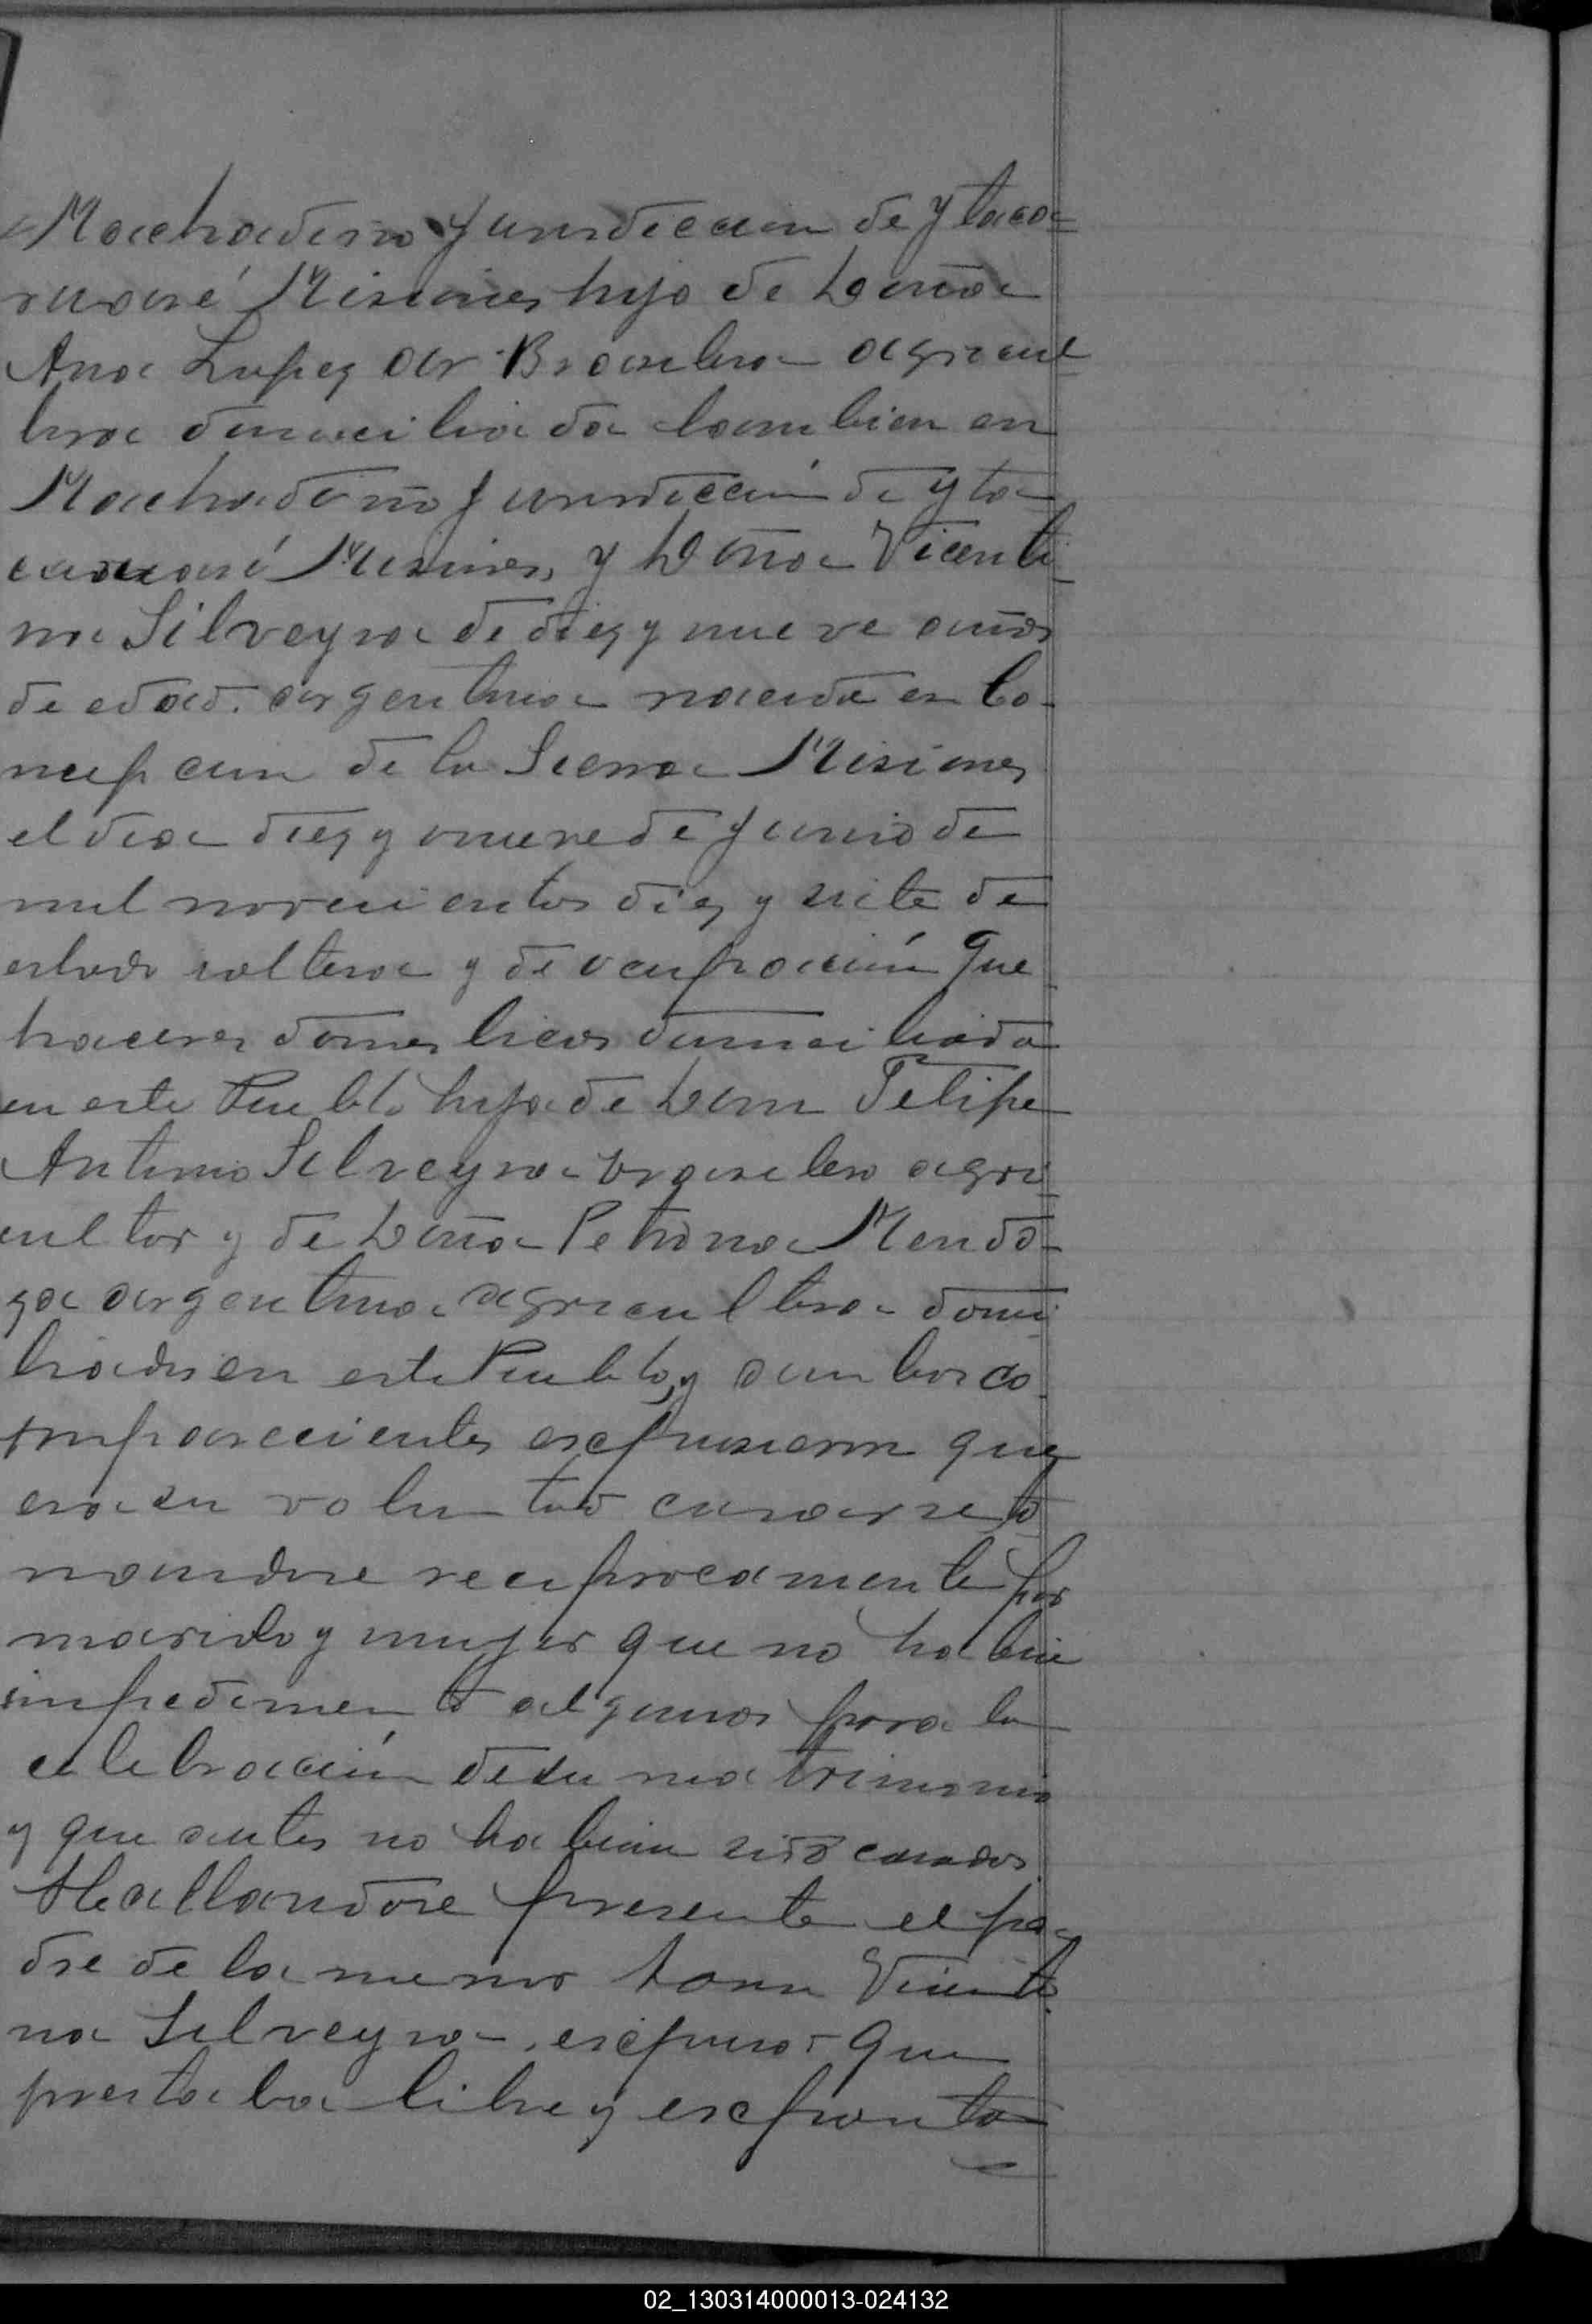 Machadiño Jurisdiccion de Ytaca-
ruaré Misiones hijo de Doña
Ana Lopez Brasilera agricul
tora domiciliada tambien en
Machadiño Jurisdicción de Yta-
caruaré Misiones, y Doña Vicenti-
na Silveyra de diez y nueve años
de edad. argentina nacida en Co-
ncepcion de la Sierra Misiones
el dia diez y nueve de Junio de
mil novecientos diez y siete de
estado soltera y de ocupación que
haceres domesticos domiciliada
en este Pueblo hija de Don Felipe
Antonio Silveyra brasilero agri-
cultor y de Doña Petrona Mendo-
za argentina agricultora domi
liados en este Pueblo, y ambos co-
mparecientes expusieron que
era su voluntad casarse to
mandose reciprocamente por
marido y mujer que no habia
impedimento alguno para la
celebración de su matrimonio
y que antes no habian sido casados.
Hallandose presente el pa-
dre de la menor Vicenti-
na Silveyra, expuso que
prestaba libre y esponta